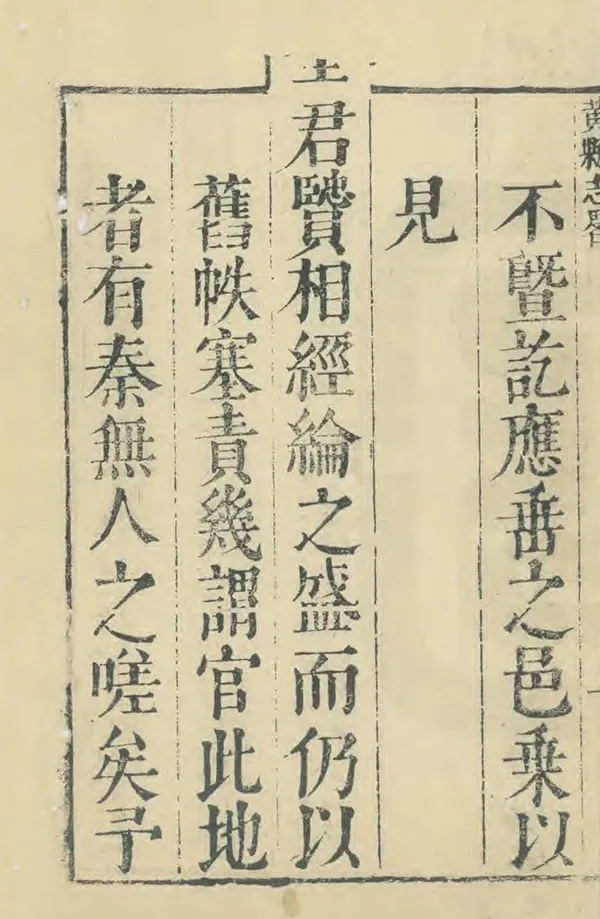 黄縣志畧
不曁訖應垂之邑乗以
見
君贒相經綸之盛而仍以
舊帙塞責幾謂官此地
者有秦無人之嗟矣予